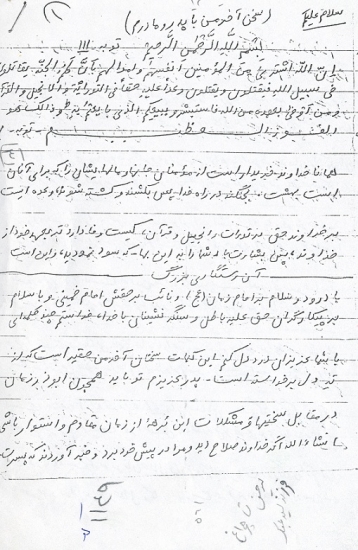 سلام علیکم
(سخن آخر من با پدر و مادرم)
بسم الله الرحمن الرحیم توبه ۱۱۱
ان الله اشتری من المؤمنین انفسهم و اموالهم بان لهم الجنة یقاتلون
فی سبیل الله فیقتلون و یقتلون وعدا علیه حقا فی التوراية والانجیل والقرآن
و من اوفی بعهده من الله فاستبشروا ببیعکم الذی بایعتم به و ذالک هو
الفوز العظیم
همانا خداوند خریدار است از مؤمنان جانها و مالهایشان را که برای آنان
است بهشت، بجنگند در راه خدا پس بکشند و کشته شوند وعده است
بر خداوند حق در تورات و انجیل و قرآن، کیست وفادارتر به عهد خود از
خداوند، پس بشارت باد شما را به این که سود نمودید، و این است
آن رستگاری بزرگ
با درود و سلام بر امام زمان (عج) و نائب بر حقش امام خمینی و با سلام
بر پیکارگران حق علیه باطل و سنگر نشینان با خدا، خواستم چند کلمه‌ای
با شما عزیزان درد دل کنم این کلمات سخنان آخر من حقیر است که از
ته دل برخواسته است. پدر عزیزم تو باید همچون ابوذر زمان
در مقابل سختیها و مشکلات این برهه از زمان مقاوم و استوار باشی
انشاء الله اگر خداوند صلاح دید و مرا در پیش خود برد و خبر آوردند که پسرت